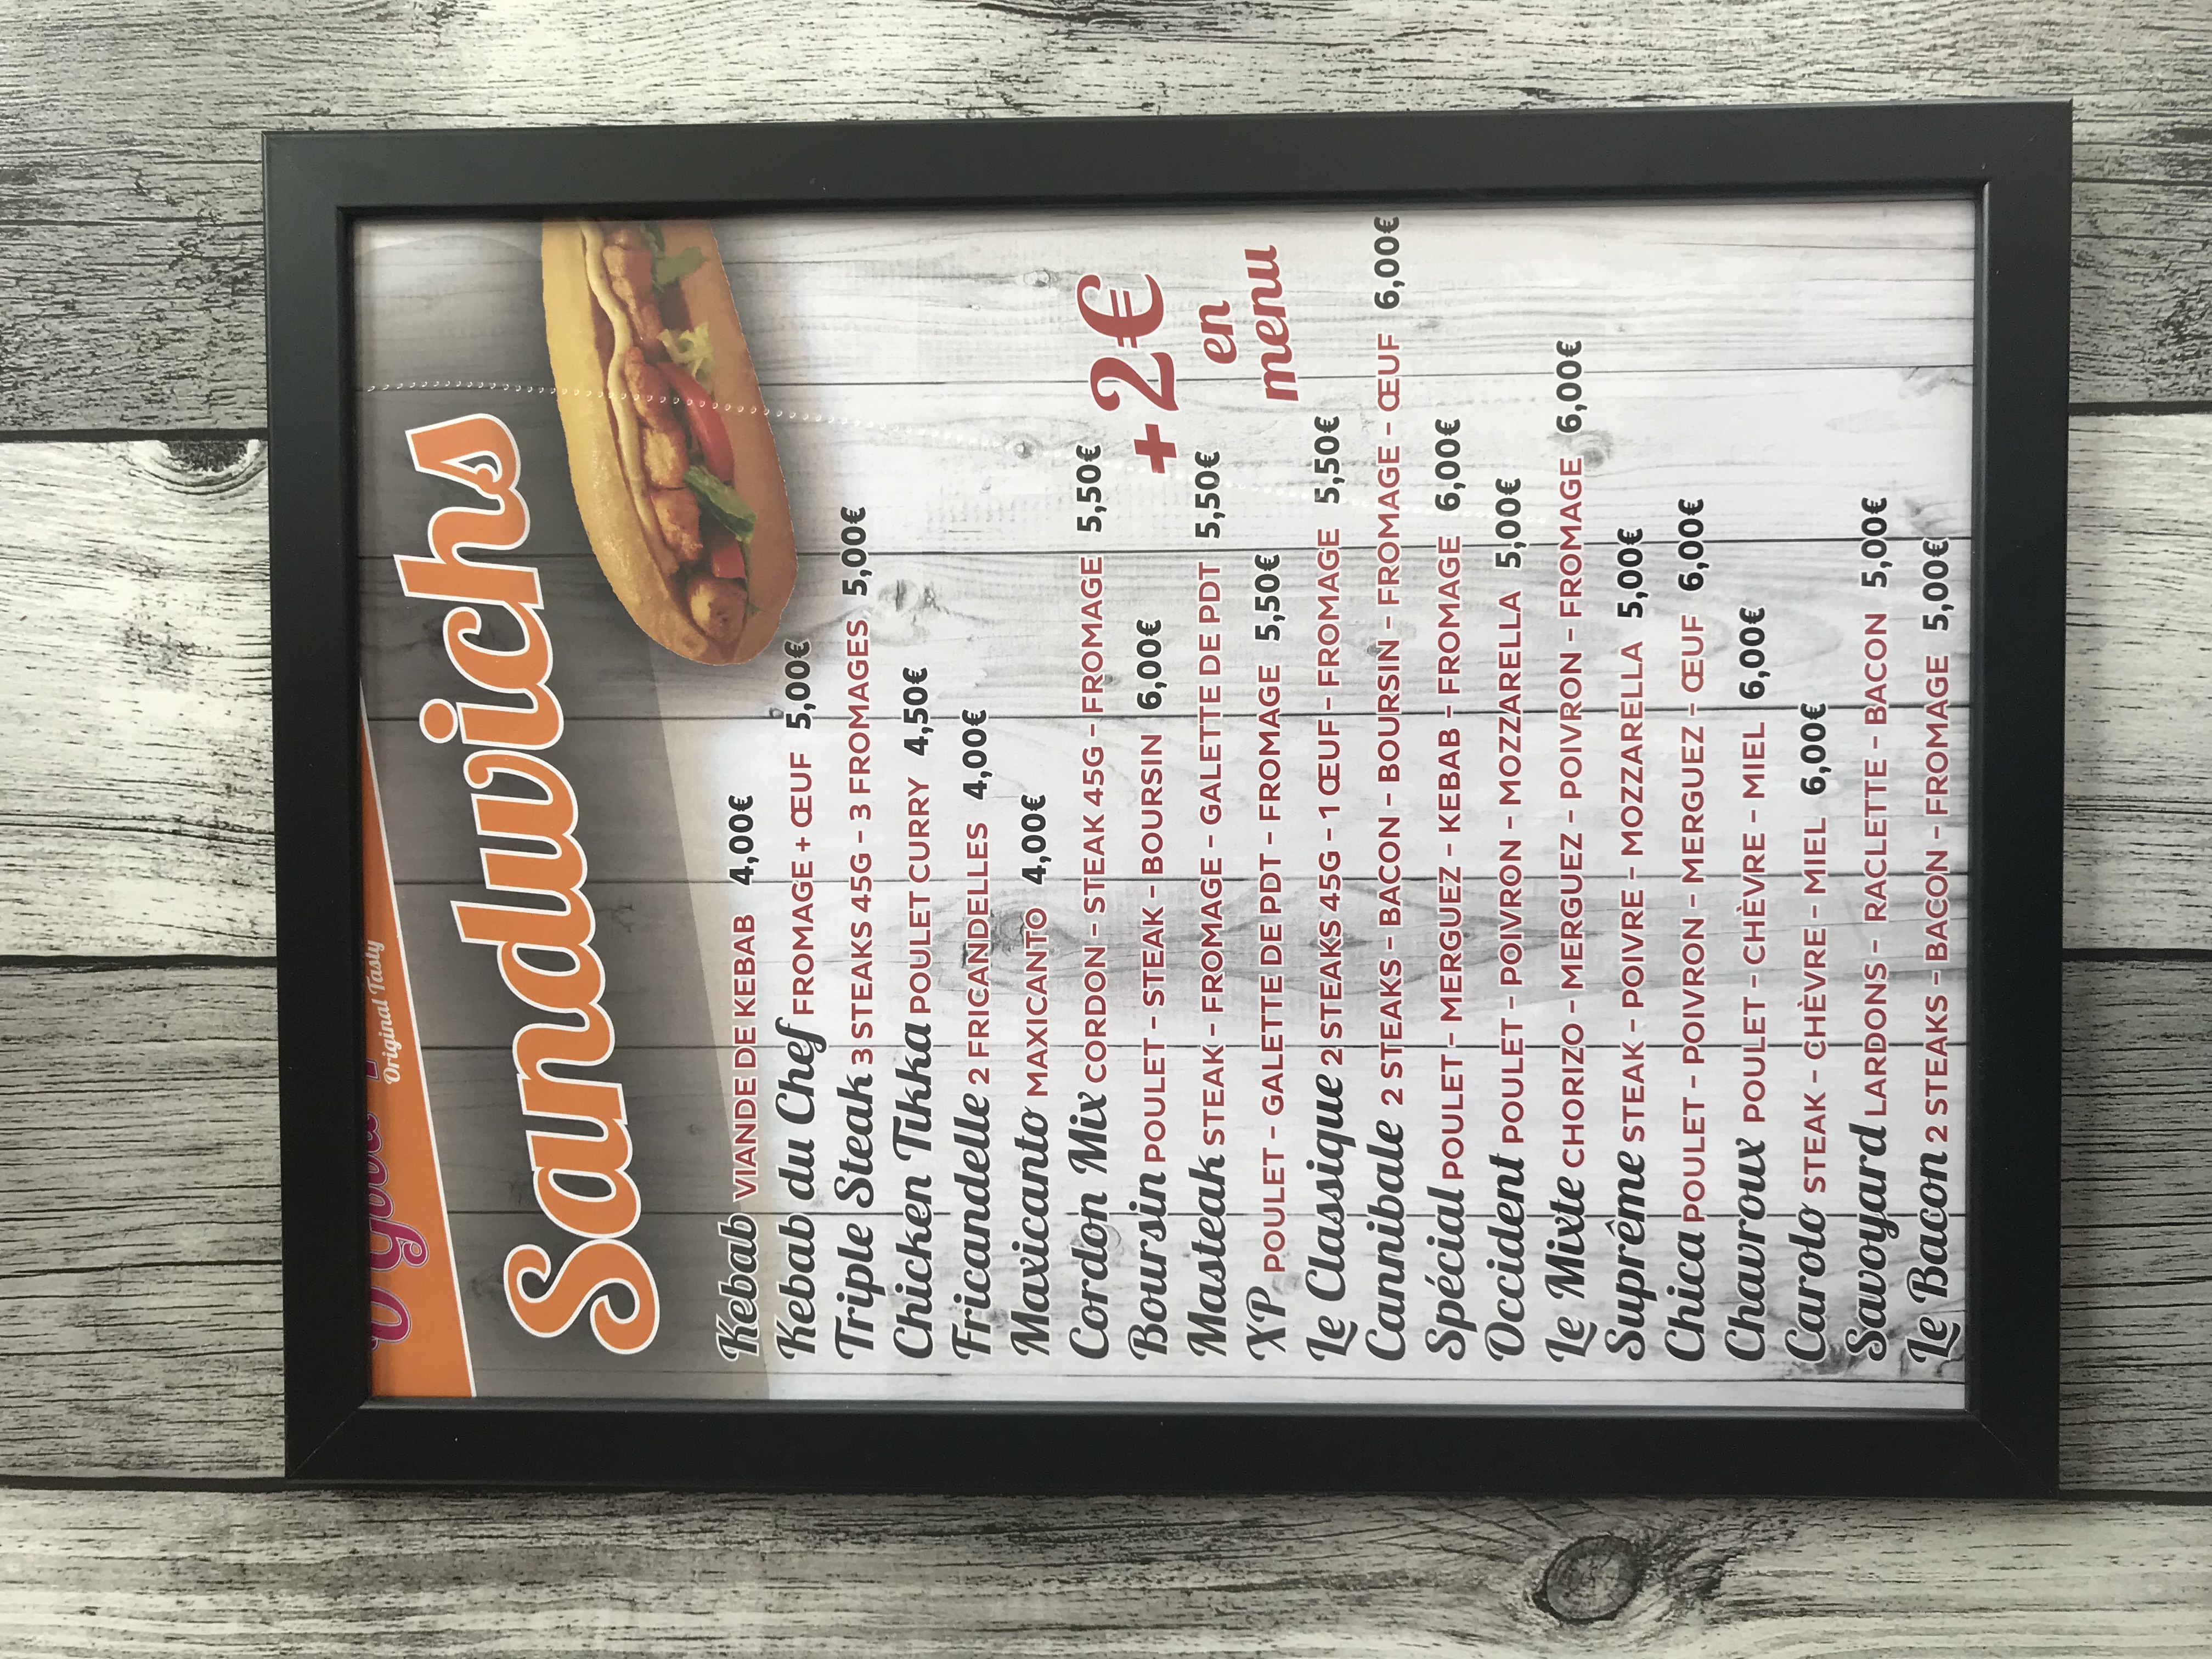 Original Tasty
Sandwichs
Kebab VIANDE DE KEBAB 4,00€
Kebab du Chef FROMAGE + ŒUF 5,00€
Triple Steak 3 STEAKS 45G - 3 FROMAGES 5,00€
Chicken Tikka POULET CURRY 4,50€
Fricandelle 2 FRICANDELLES 4,00€
Maxicanto MAXICANTO 4,00€
Cordon Mix CORDON - STEAK 45G - FROMAGE 5,50€
Boursin POULET - STEAK - BOURSIN 6,00€
+ 2€
Masteak STEAK - FROMAGE - GALETTE DE PDT 5,50€
en
menu
XP POULET - GALETTE DE PDT - FROMAGE 5,50€
Le Classique 2 STEAKS 45G - 1 ŒUF - FROMAGE 5,50€
Cannibale 2 STEAKS - BACON - BOURSIN - FROMAGE - ŒUF 6,00€
Spécial POULET - MERGUEZ - KEBAB - FROMAGE 6,00€
Occident POULET - POIVRON - MOZZARELLA 5,00€
Le Mixte CHORIZO - MERGUEZ - POIVRON - FROMAGE 6,00€
Suprême STEAK - POIVRE - MOZZARELLA 5,00€
Chica POULET - POIVRON - MERGUEZ - ŒUF 6,00€
Chavroux POULET - CHÈVRE - MIEL 6,00€
Carolo STEAK - CHÈVRE - MIEL 6,00€
Savoyard LARDONS - RACLETTE - BACON 5,00€
Le Bacon 2 STEAKS - BACON - FROMAGE 5,00€